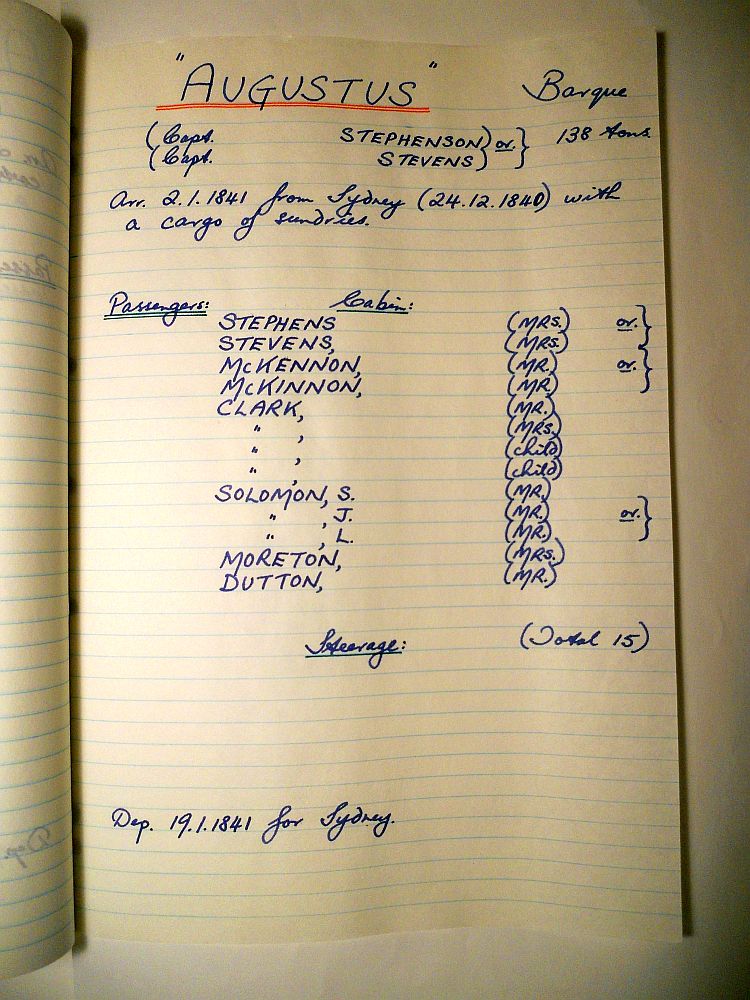 "AUGUSTUS" Barque
(Capt. STEPHENSON) or. } 138 tons
(Capt. STEVENS)
Arr. 2.1.1841 from Sydney (24.12.1840) with
a cargo of sundries.
Passengers: Cabin:
STEPHENS (MRS.) or. }
STEVENS, (MRS.)
McKENNON, (MR.) or. }
McKINNON, (MR.)
CLARK, (MR.)
" , (MRS.)
" , (child)
" , (child)
SOLOMON, S. (MR.)
" , J. (MR.) or. }
" , L. (MR.)
MORETON, (MRS.)
DUTTON, (MR.)
Steerage: (Total 15)
Dep. 19.1.1841 for Sydney.